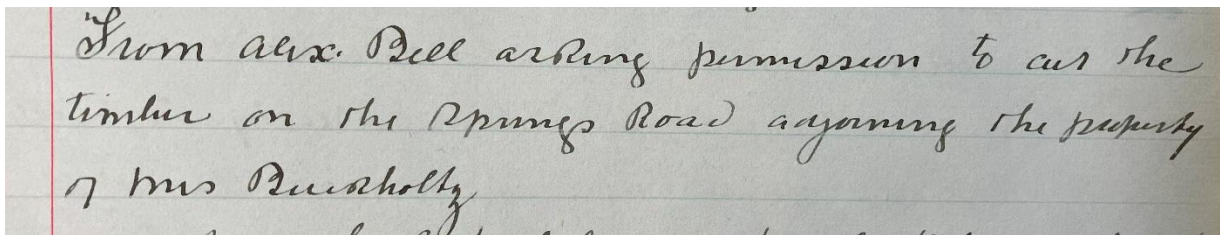 "From Alex. Bell asking permission to cut the
timber on the Springs Road adjoining the property
of Mrs Buckholtz